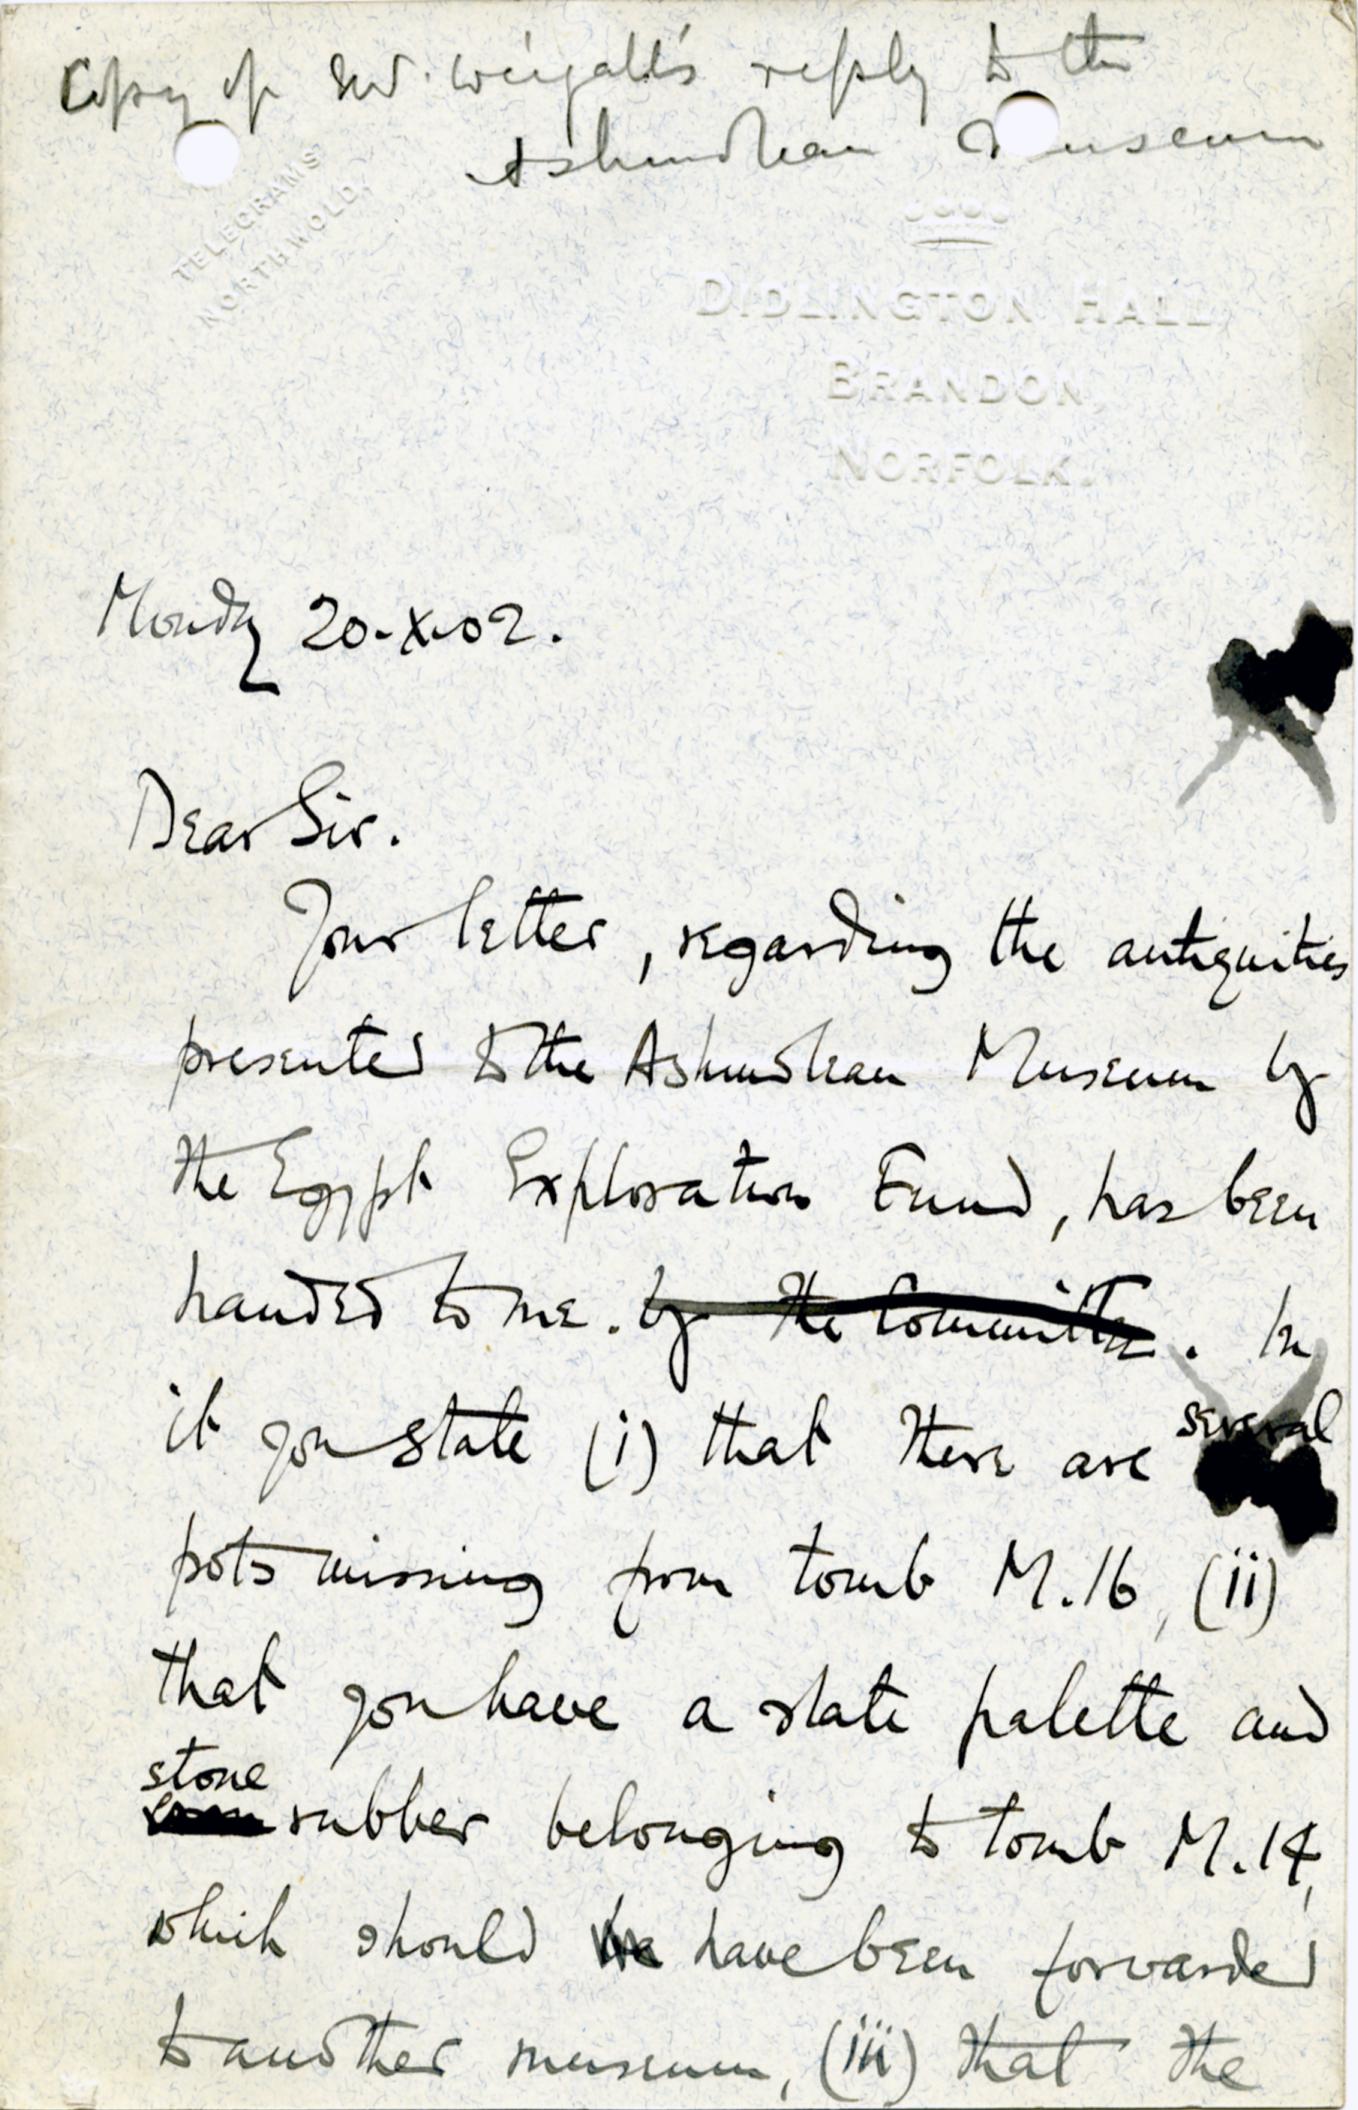 Copy of Mr. Weigall's reply to the
Ashmolean Museum
TELEGRAMS
NORTHWOLD.
DIDLINGTON HALL
BRANDON,
NORFOLK.
Monday 20-X-02.
Dear Sir.
Your letter, regarding the antiquities
presented to the Ashmolean Museum by
the Egypt Exploration Fund, has been
handed to me. by the Committee. In
it you state (i) that there are several
pots missing from tomb M.16, (ii)
that you have a slate palette and
stone
rubber belonging to tomb M.14,
which should have been forwarded
to another museum, (iii) that the